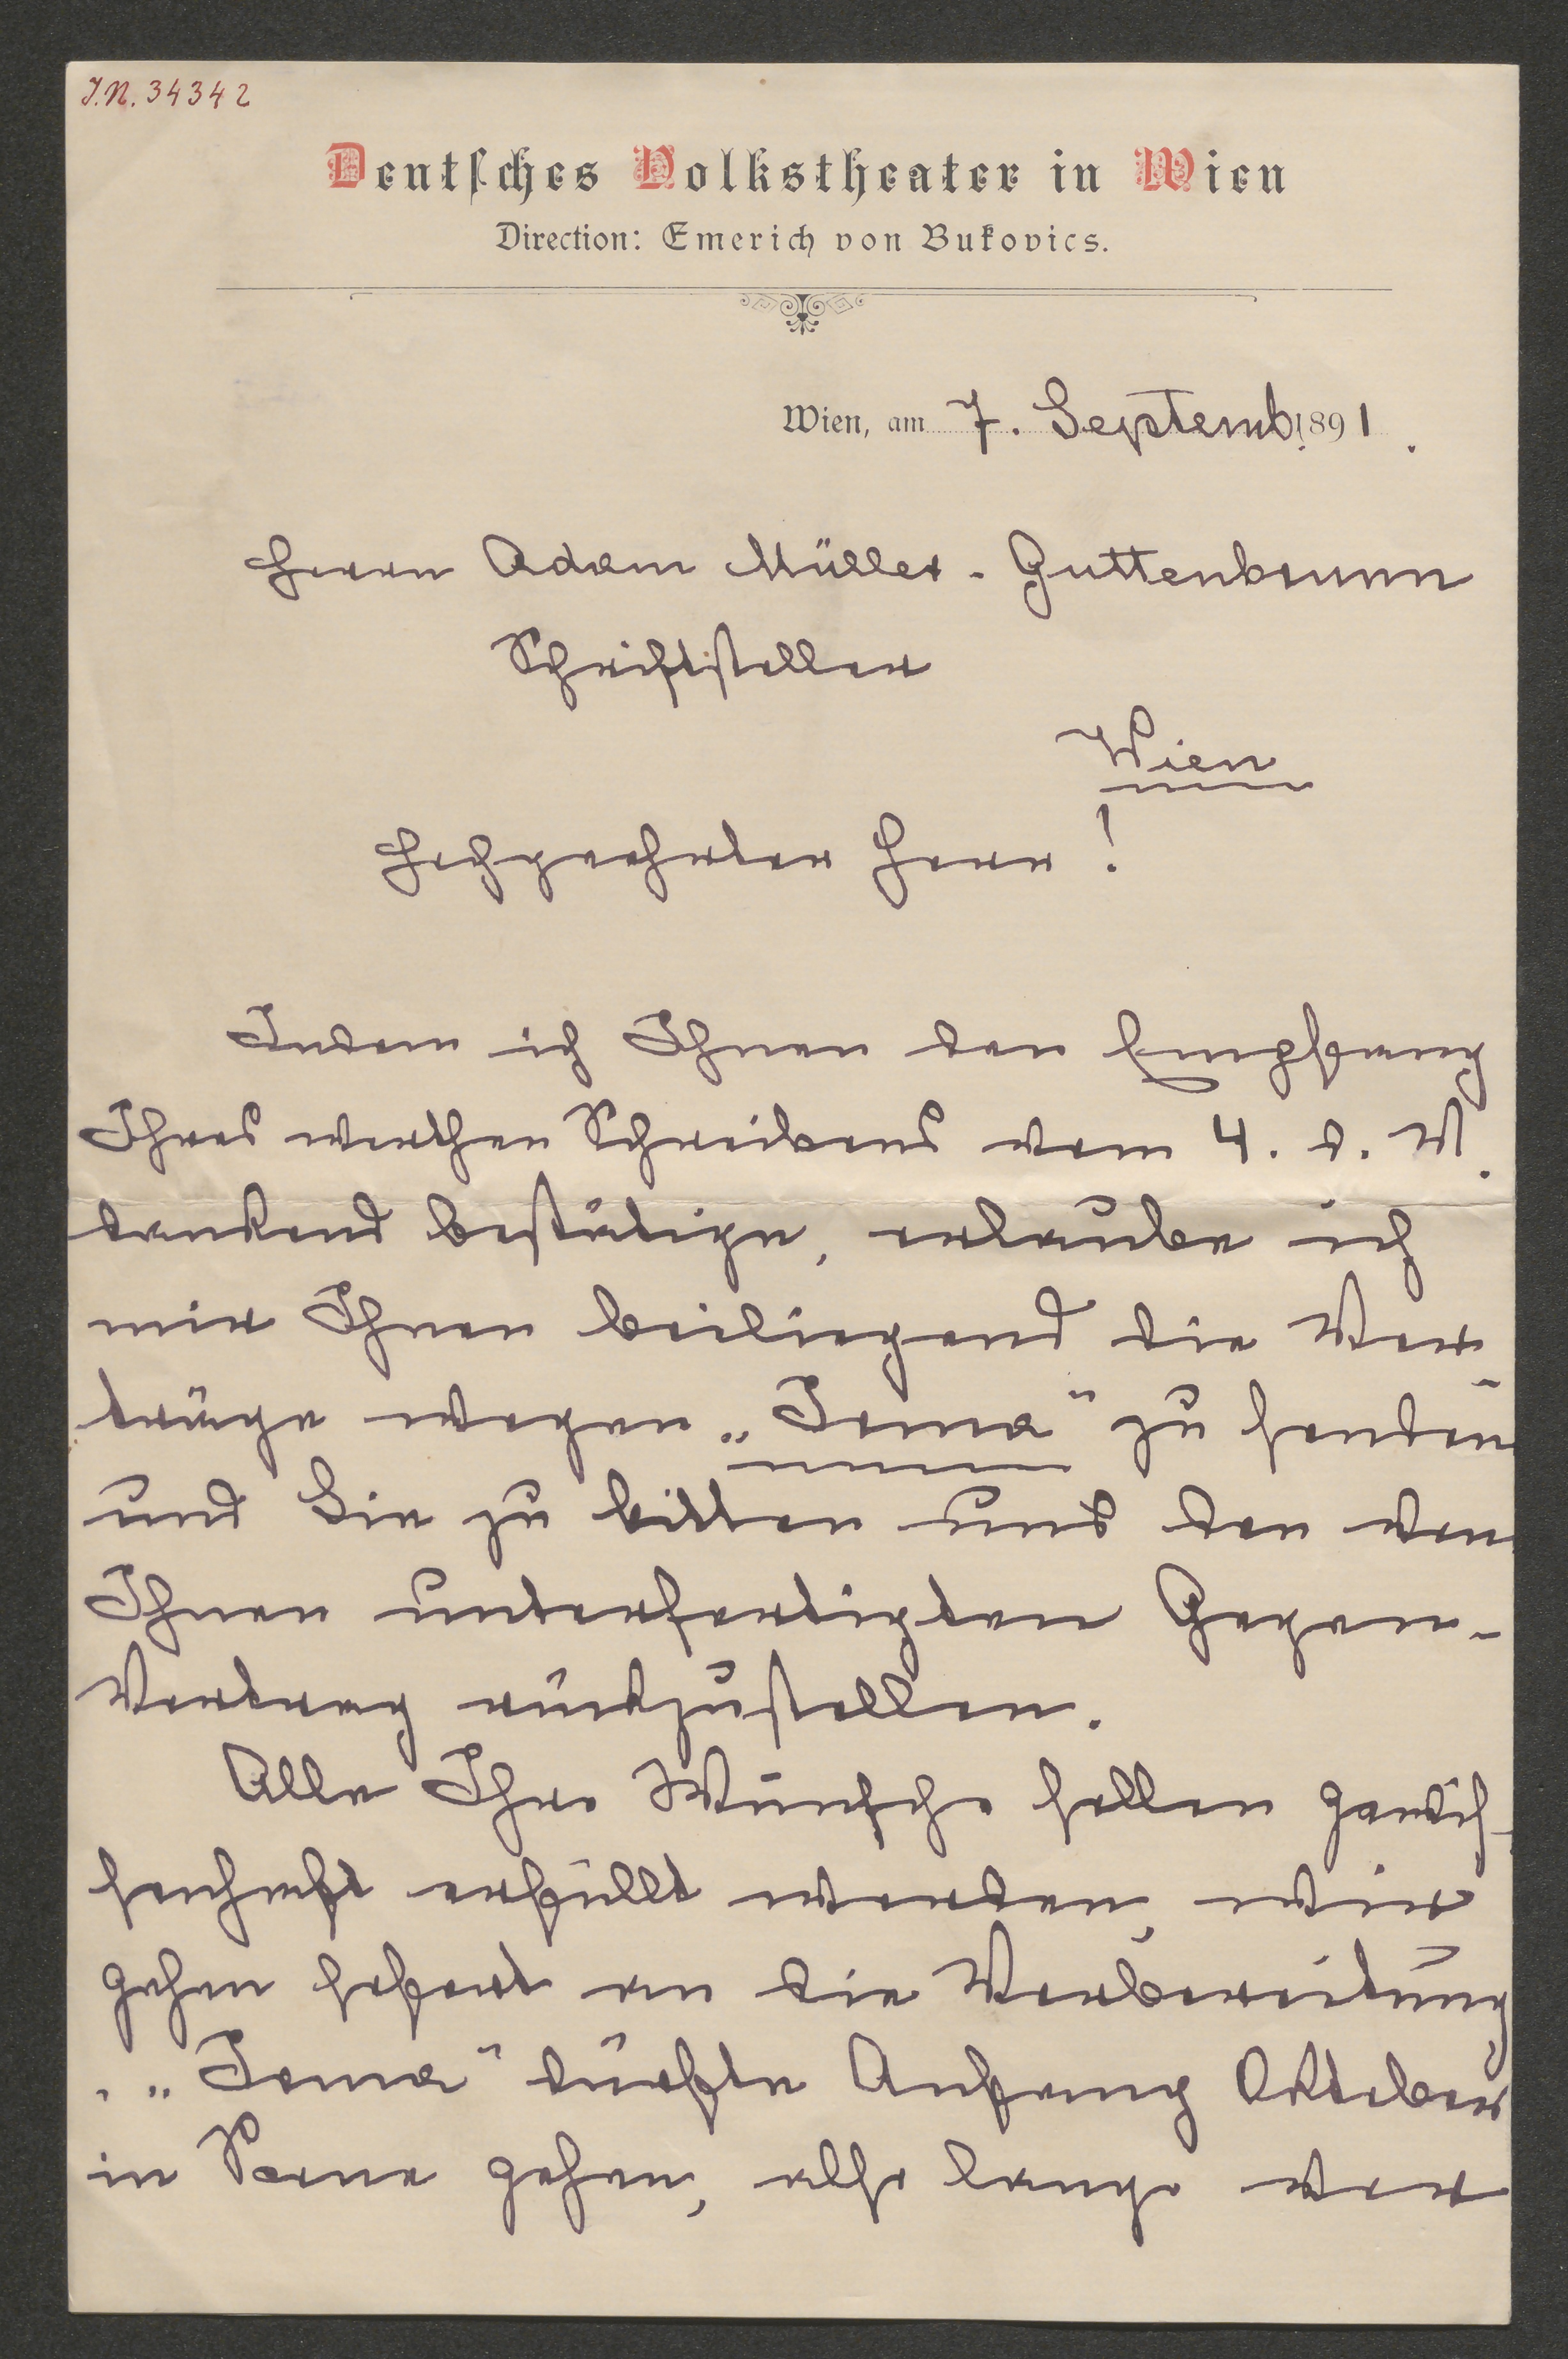 J.N. 34342
Deutsches Volkstheater in Wien
Direction: Emerich von Bukovics.
Wien, am 7. Septemb. 1891.
Herrn Adam Müller-Guttenbrunn
Schriftsteller
Wien
Hochgeehrter Herr!
Indem ich Ihnen den Empfang
Ihres werthen Schreibens vom 4. d. M.
dankend bestätige, erlaube ich
mir Ihnen beiliegend die Ver-
träge wegen „Irma“ zu senden
und Sie zu bitten uns den von
Ihnen unterfertigten Gegen-
Vertrag rückzustellen.
Alle Ihre Wünsche sollen gewis-
senhaft erfüllt werden, wir
gehen sofort an die Vorbereitung
. „Irma“ dürfte Anfang Oktober
in Scene gehen, also lange vor